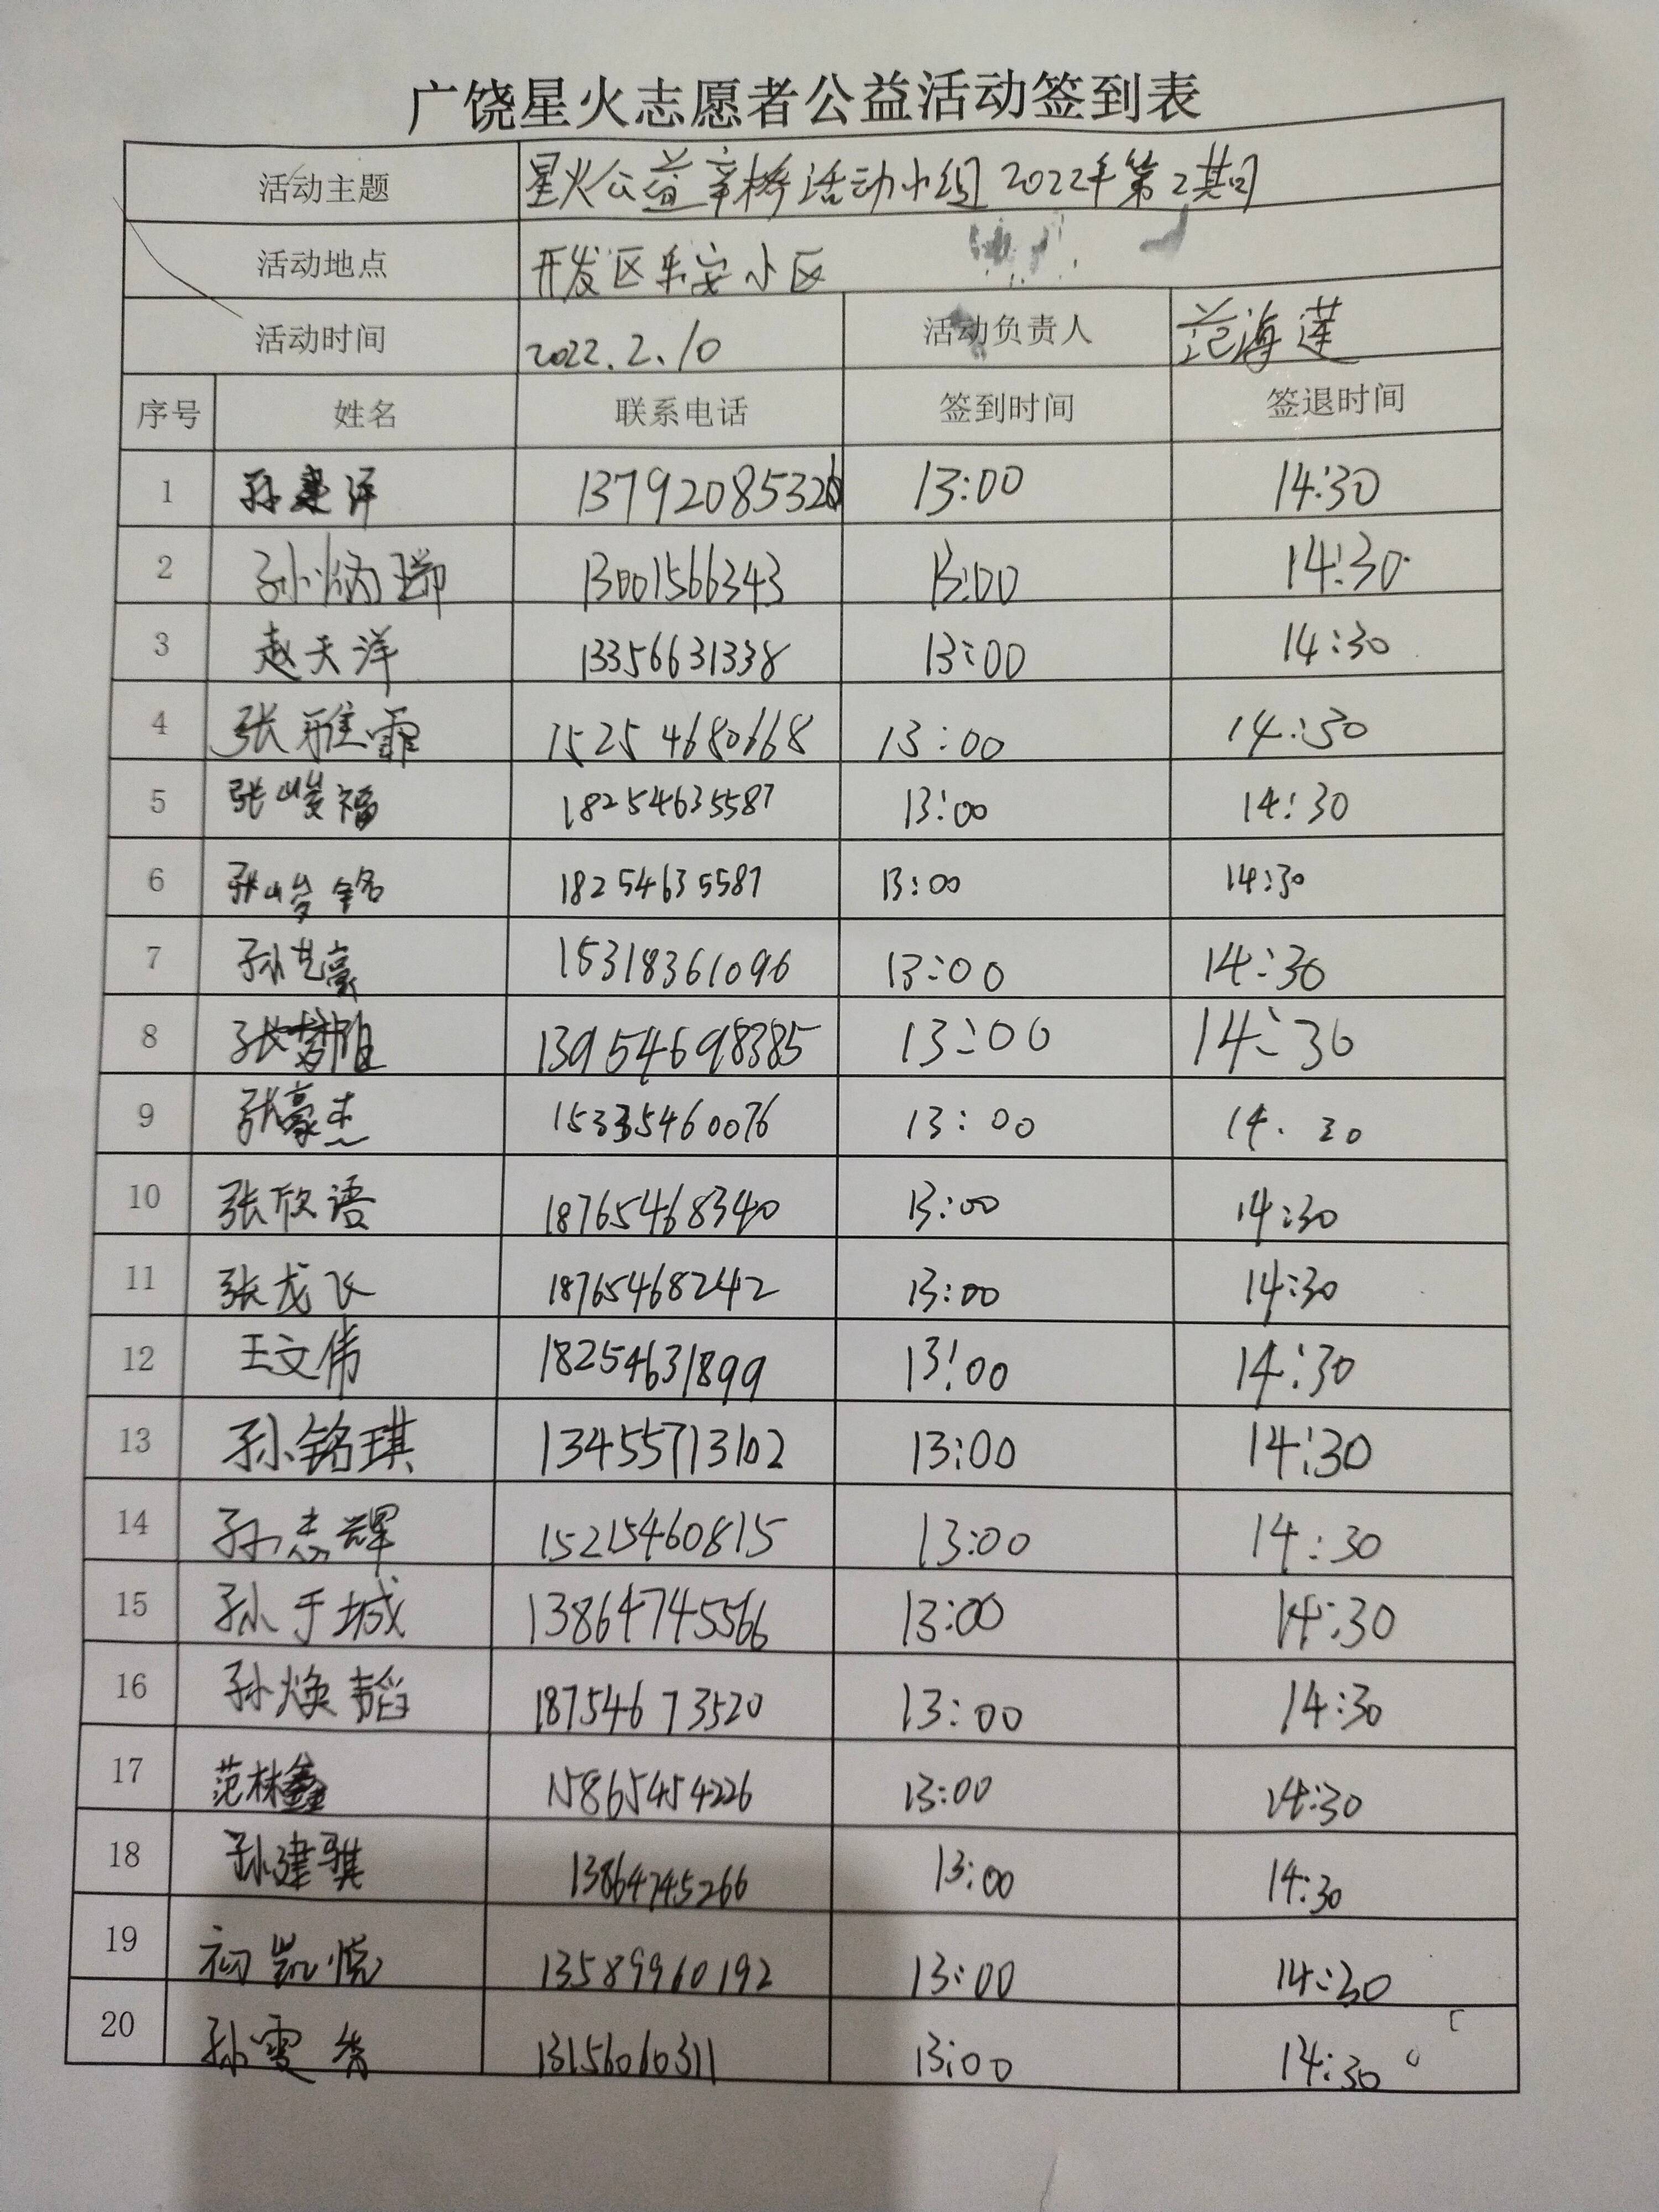 广饶星火志愿者公益活动签到表
活动主题 星火公益辛桥活动小组2022年第2期
活动地点 开发区乐安小区
活动时间 2022.2.10 活动负责人 范海莲
序号 姓名 联系电话 签到时间 签退时间
1 孙建洋 13792085326 13:00 14:30
2 孙炳瑞 13001566343 13:00 14:30
3 赵天洋 13356631338 13:00 14:30
4 张雅霏 15254680668 13:00 14:30
5 张峻福 18254635587 13:00 14:30
6 张峻铭 18254635587 13:00 14:30
7 孙艺豪 15318361096 13:00 14:30
8 张梦雅 13954698385 13:00 14:30
9 张豪杰 15335460076 13:00 14.30
10 张欣语 18765468340 13:00 14:30
11 张龙飞 18765468242 13:00 14:30
12 王文伟 18254631899 13:00 14:30
13 孙铭琪 13455713102 13:00 14:30
14 孙志辉 15215460815 13:00 14:30
15 孙于城 13864745566 13:00 14:30
16 孙焕韬 18754673520 13:00 14:30
17 范林鑫 15865454226 13:00 14:30
18 孙建骐 13864745266 13:00 14:30
19 初凯悦 13589960192 13:00 14:30
20 孙雯 13156060311 13:00 14:30